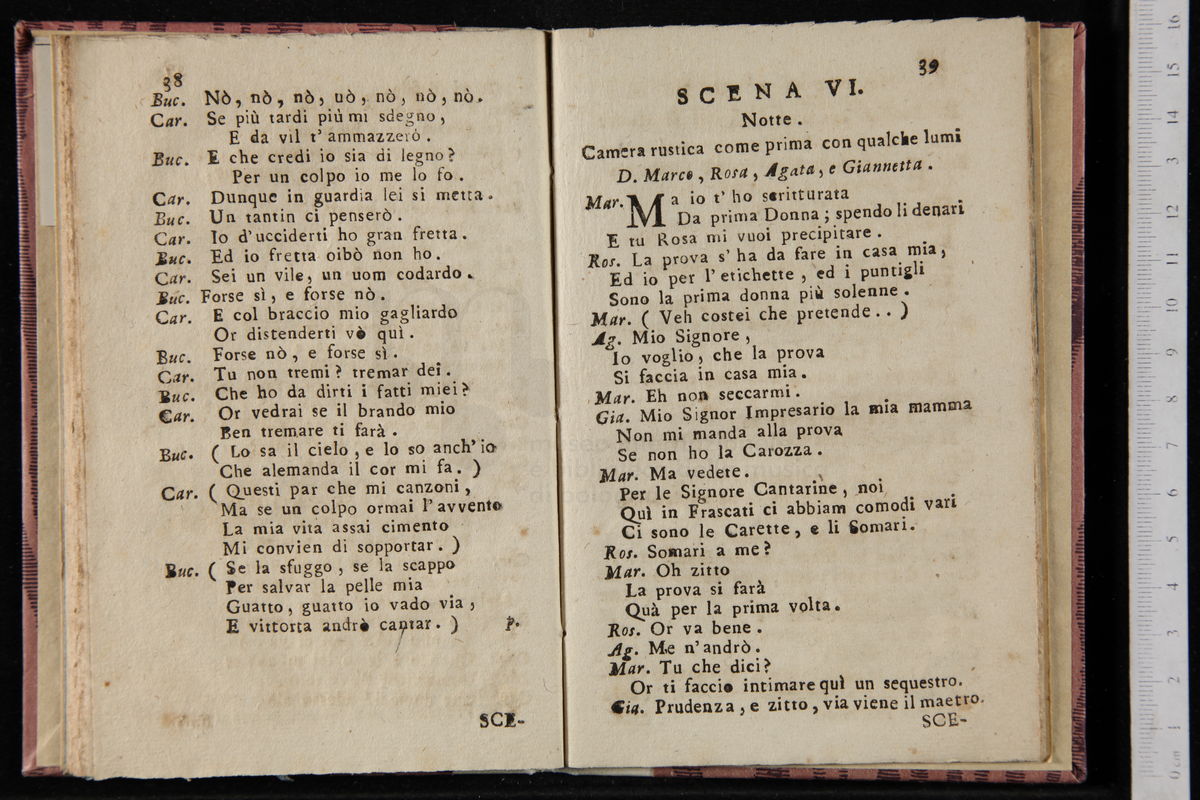 38
Buc. Nò, nò, nò, uò, nò, nò, nò.
Car. Se più tardi più mi sdegno,
E da vil t' ammazzerò.
Buc. E che credi io sia di legno?
Per un colpo io me lo fo.
Car. Dunque in guardia lei si metta.
Buc. Un tantin ci penserò.
Car. Io d'ucciderti ho gran fretta.
Buc. Ed io fretta oibò non ho.
Car. Sei un vile, un uom codardo.
Buc. Forse sì, e forse nò.
Car. E col braccio mio gagliardo
Or distenderti vò quì.
Buc. Forse nò, e forse sì.
Car. Tu non tremi? tremar dei.
Buc. Che ho da dirti i fatti miei?
Car. Or vedrai se il brando mio
Ben tremare ti farà.
Buc. ( Lo sa il cielo, e lo so anch' io
Che alemanda il cor mi fa. )
Car. ( Questi par che mi canzoni,
Ma se un colpo ormai l'avvento
La mia vita assai cimento
Mi convien di sopportar. )
Buc. ( Se la sfuggo, se la scappo
Per salvar la pelle mia
Guatto, guatto io vado via,
E vittorta andrò cantar. ) p.
SCE-
39
SCENA VI.
Notte.
Camera rustica come prima con qualche lumi
D. Marco, Rosa, Agata, e Giannetta.
Mar. Ma io t' ho scritturata
Da prima Donna; spendo li denari
E tu Rosa mi vuoi precipitare.
Ros. La prova s' ha da fare in casa mia,
Ed io per l'etichette, ed i puntigli
Sono la prima donna più solenne.
Mar. ( Veh costei che pretende.. )
Ag. Mio Signore,
Io voglio, che la prova
Si faccia in casa mia.
Mar. Eh non seccarmi.
Gia. Mio Signor Impresario la mia mamma
Non mi manda alla prova
Se non ho la Carozza.
Mar. Ma vedete.
Per le Signore Cantarine, noi
Quì in Frascati ci abbiam comodi vari
Ci sono le Carette, e li Somari.
Ros. Somari a me?
Mar. Oh zitto
La prova si farà
Quà per la prima volta.
Ros. Or va bene.
Ag. Me n'andrò.
Mar. Tu che dici?
Or ti faccio intimare quì un sequestro.
Gia. Prudenza, e zitto, via viene il maetro.
SCE-